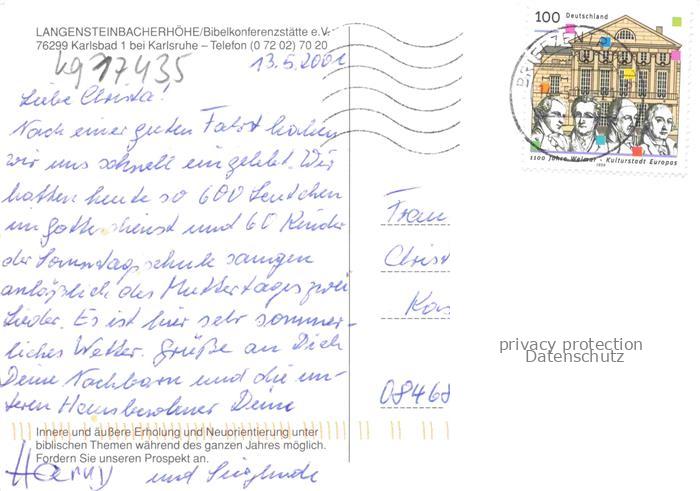 LANGENSTEINBACHERHÖHE/Bibelkonferenzstätte e.V.
76299 Karlsbad 1 bei Karlsruhe – Telefon (0 72 02) 70 20
kg 17435
13.5.2001
Liebe Christa!
Nach einer guten Fahrt haben
wir uns schnell eingelebt. Wir
hatten heute so 600 Leutchen
im Gottesdienst und 60 Kinder
der Sonntagsschule sangen
anläßlich des Muttertages zwei
Lieder. Es ist hier sehr sommer-
liches Wetter. Grüße an Dich
Deine Nachbarn und die un-
teren Hausbewohner Deine
Innere und äußere Erholung und Neuorientierung unter
biblischen Themen während des ganzen Jahres möglich.
Fordern Sie unseren Prospekt an.
und Sieglinde
100 Deutschland
BRIEFZEN
1100 Jahre Weimar - Kulturstadt Europas
1999
Frau
Christ
08468
privacy protection
Datenschutz